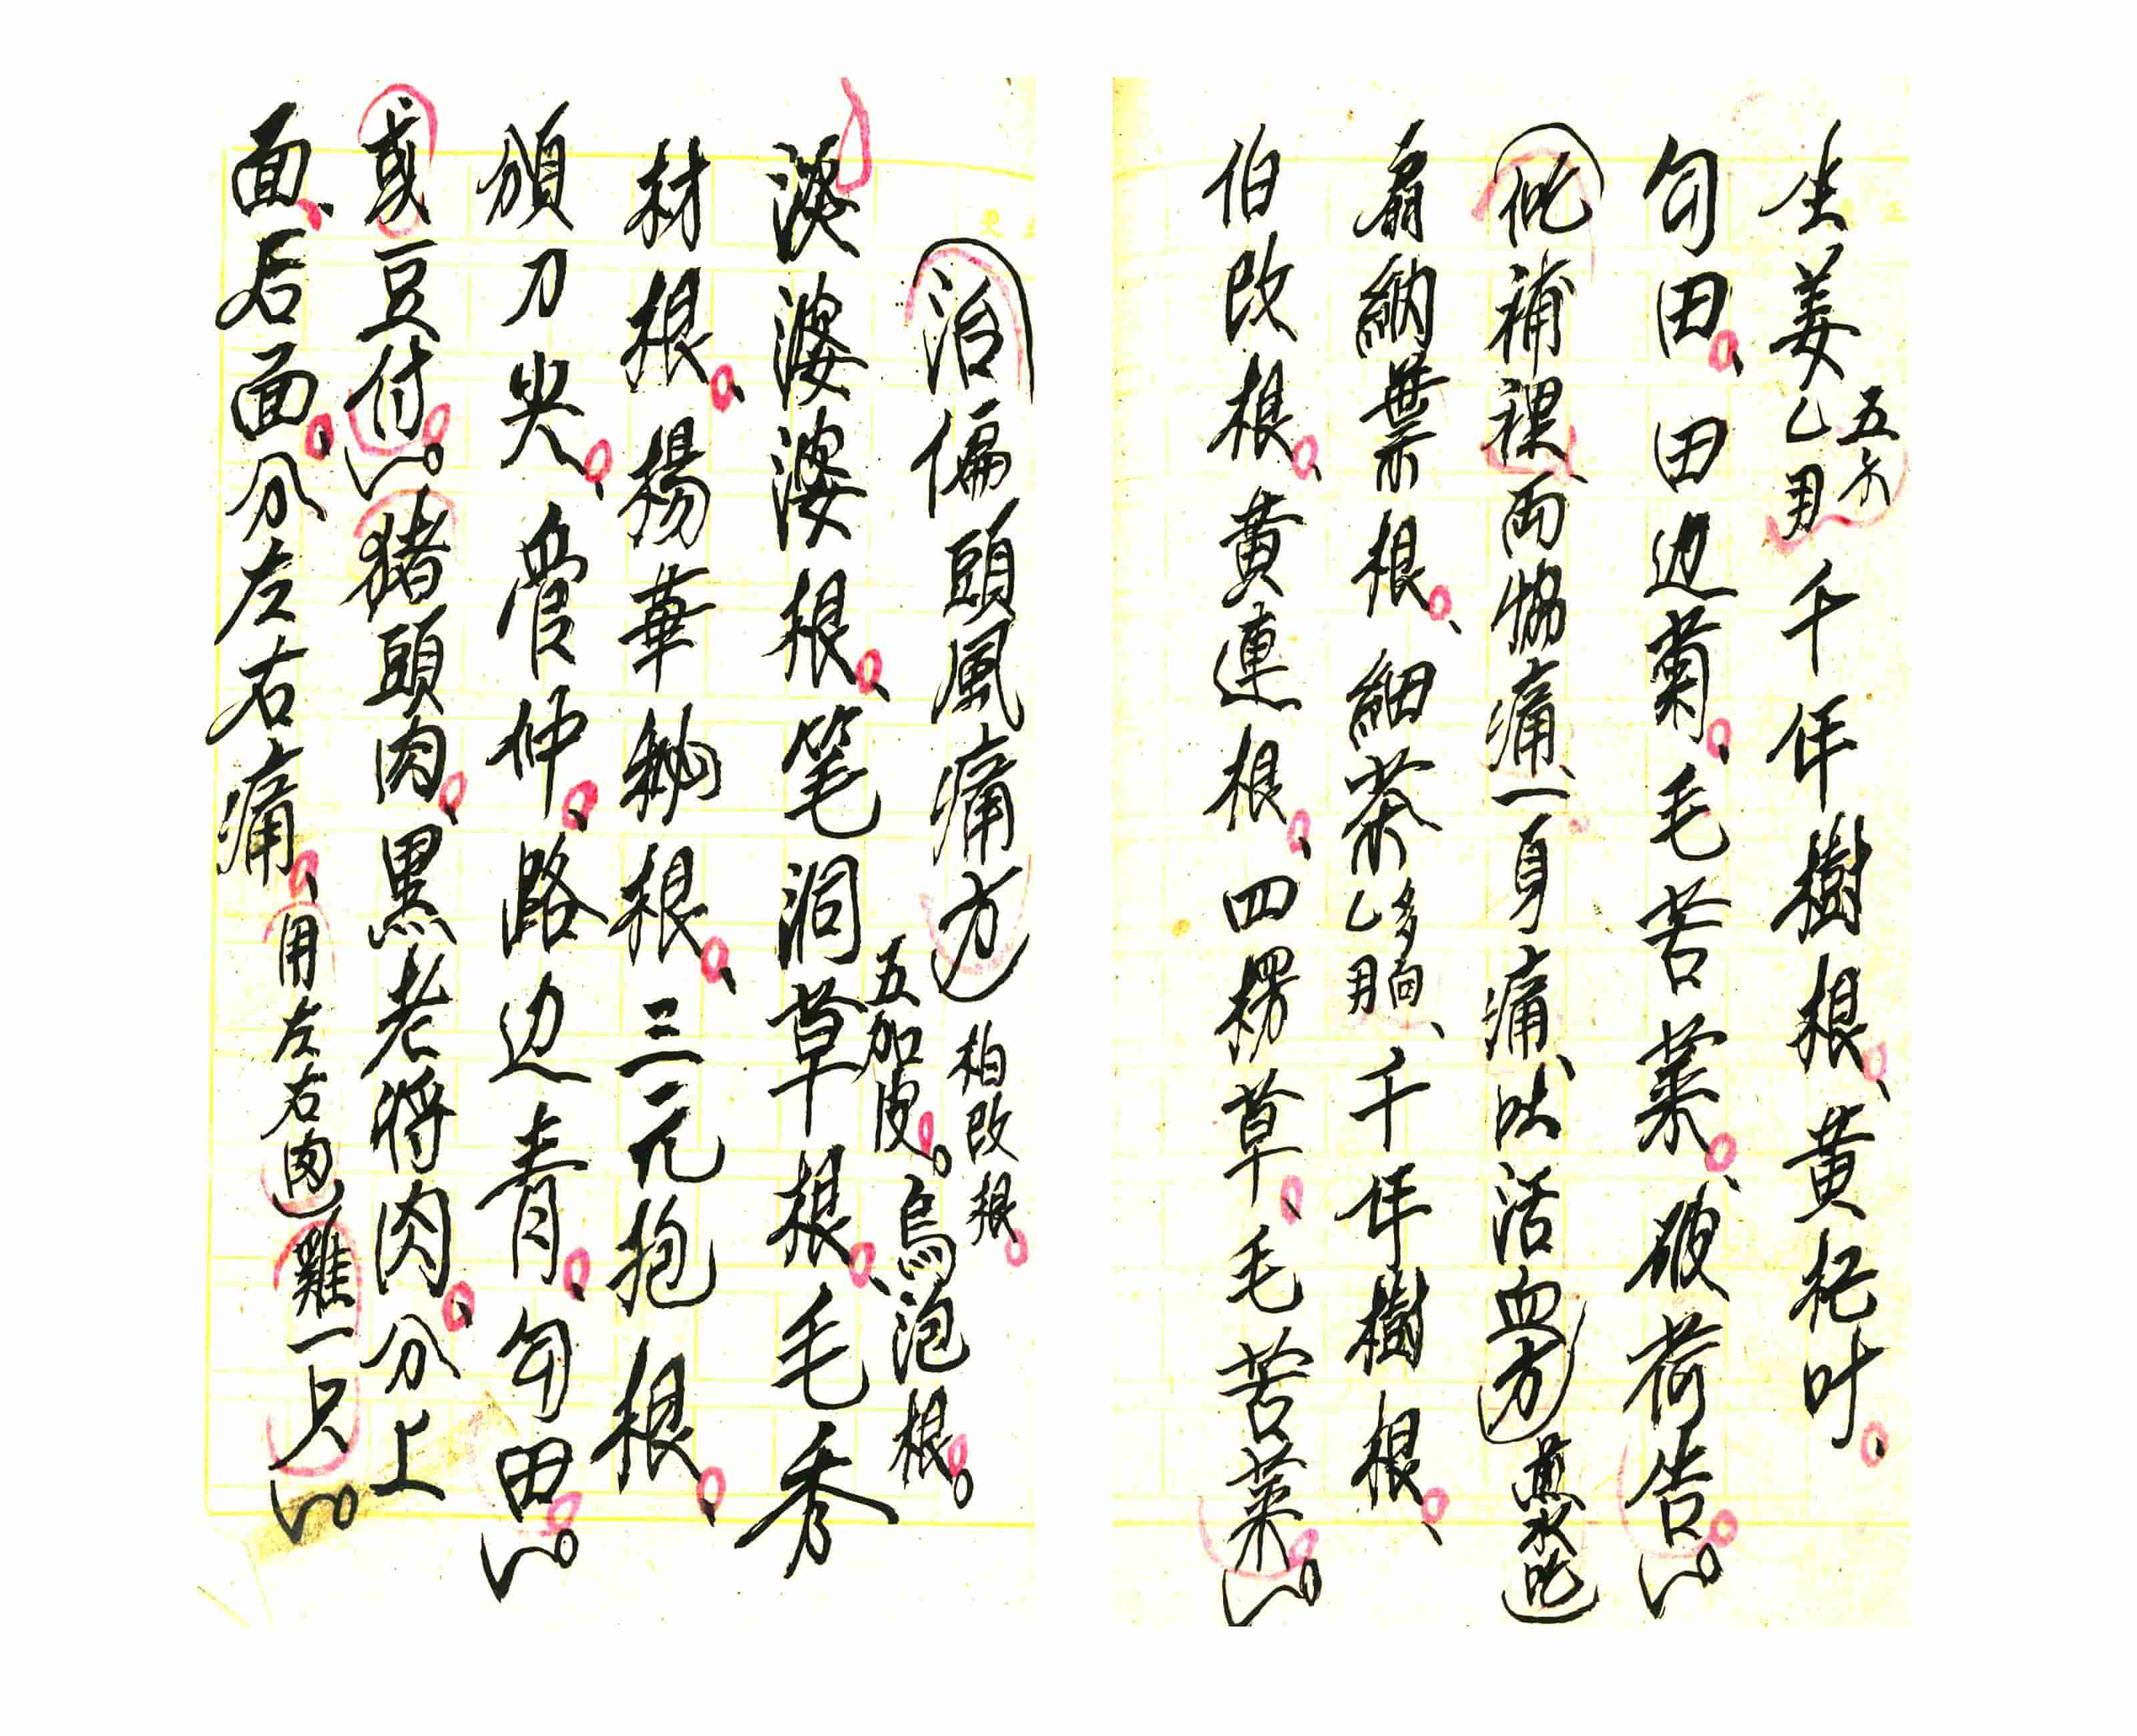 生姜乙用五分千年樹根、黄杞叶、
勾田、田边菊、毛苦菜、破荷告。
補裸、両㑊痛、一身痛、以活血方煎水吃
扇納葉根、細茶乙多用、千年樹根、
伯改根、黄連根、四楞草、毛苦菜。
治偏頭風痛方 柏改根
五加皮。烏泡根。
淡婆婆根、笔洞草根、毛秀
材根、楊華根、三元抱根、
頒刀尖、骨仲、路边青、勾田。
或豆付。猪頭肉、黒老将肉、分上
面、后面、分左右痛、用左右肉 雞一只。